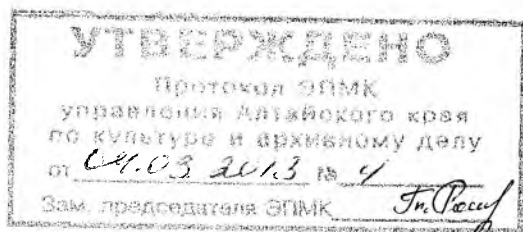 УТВЕРЖДЕНО
Протокол ЭПМК
управления Алтайского края
по культуре и архивному делу
от 04.03.2013 № 4
Зам. председателя ЭПМК